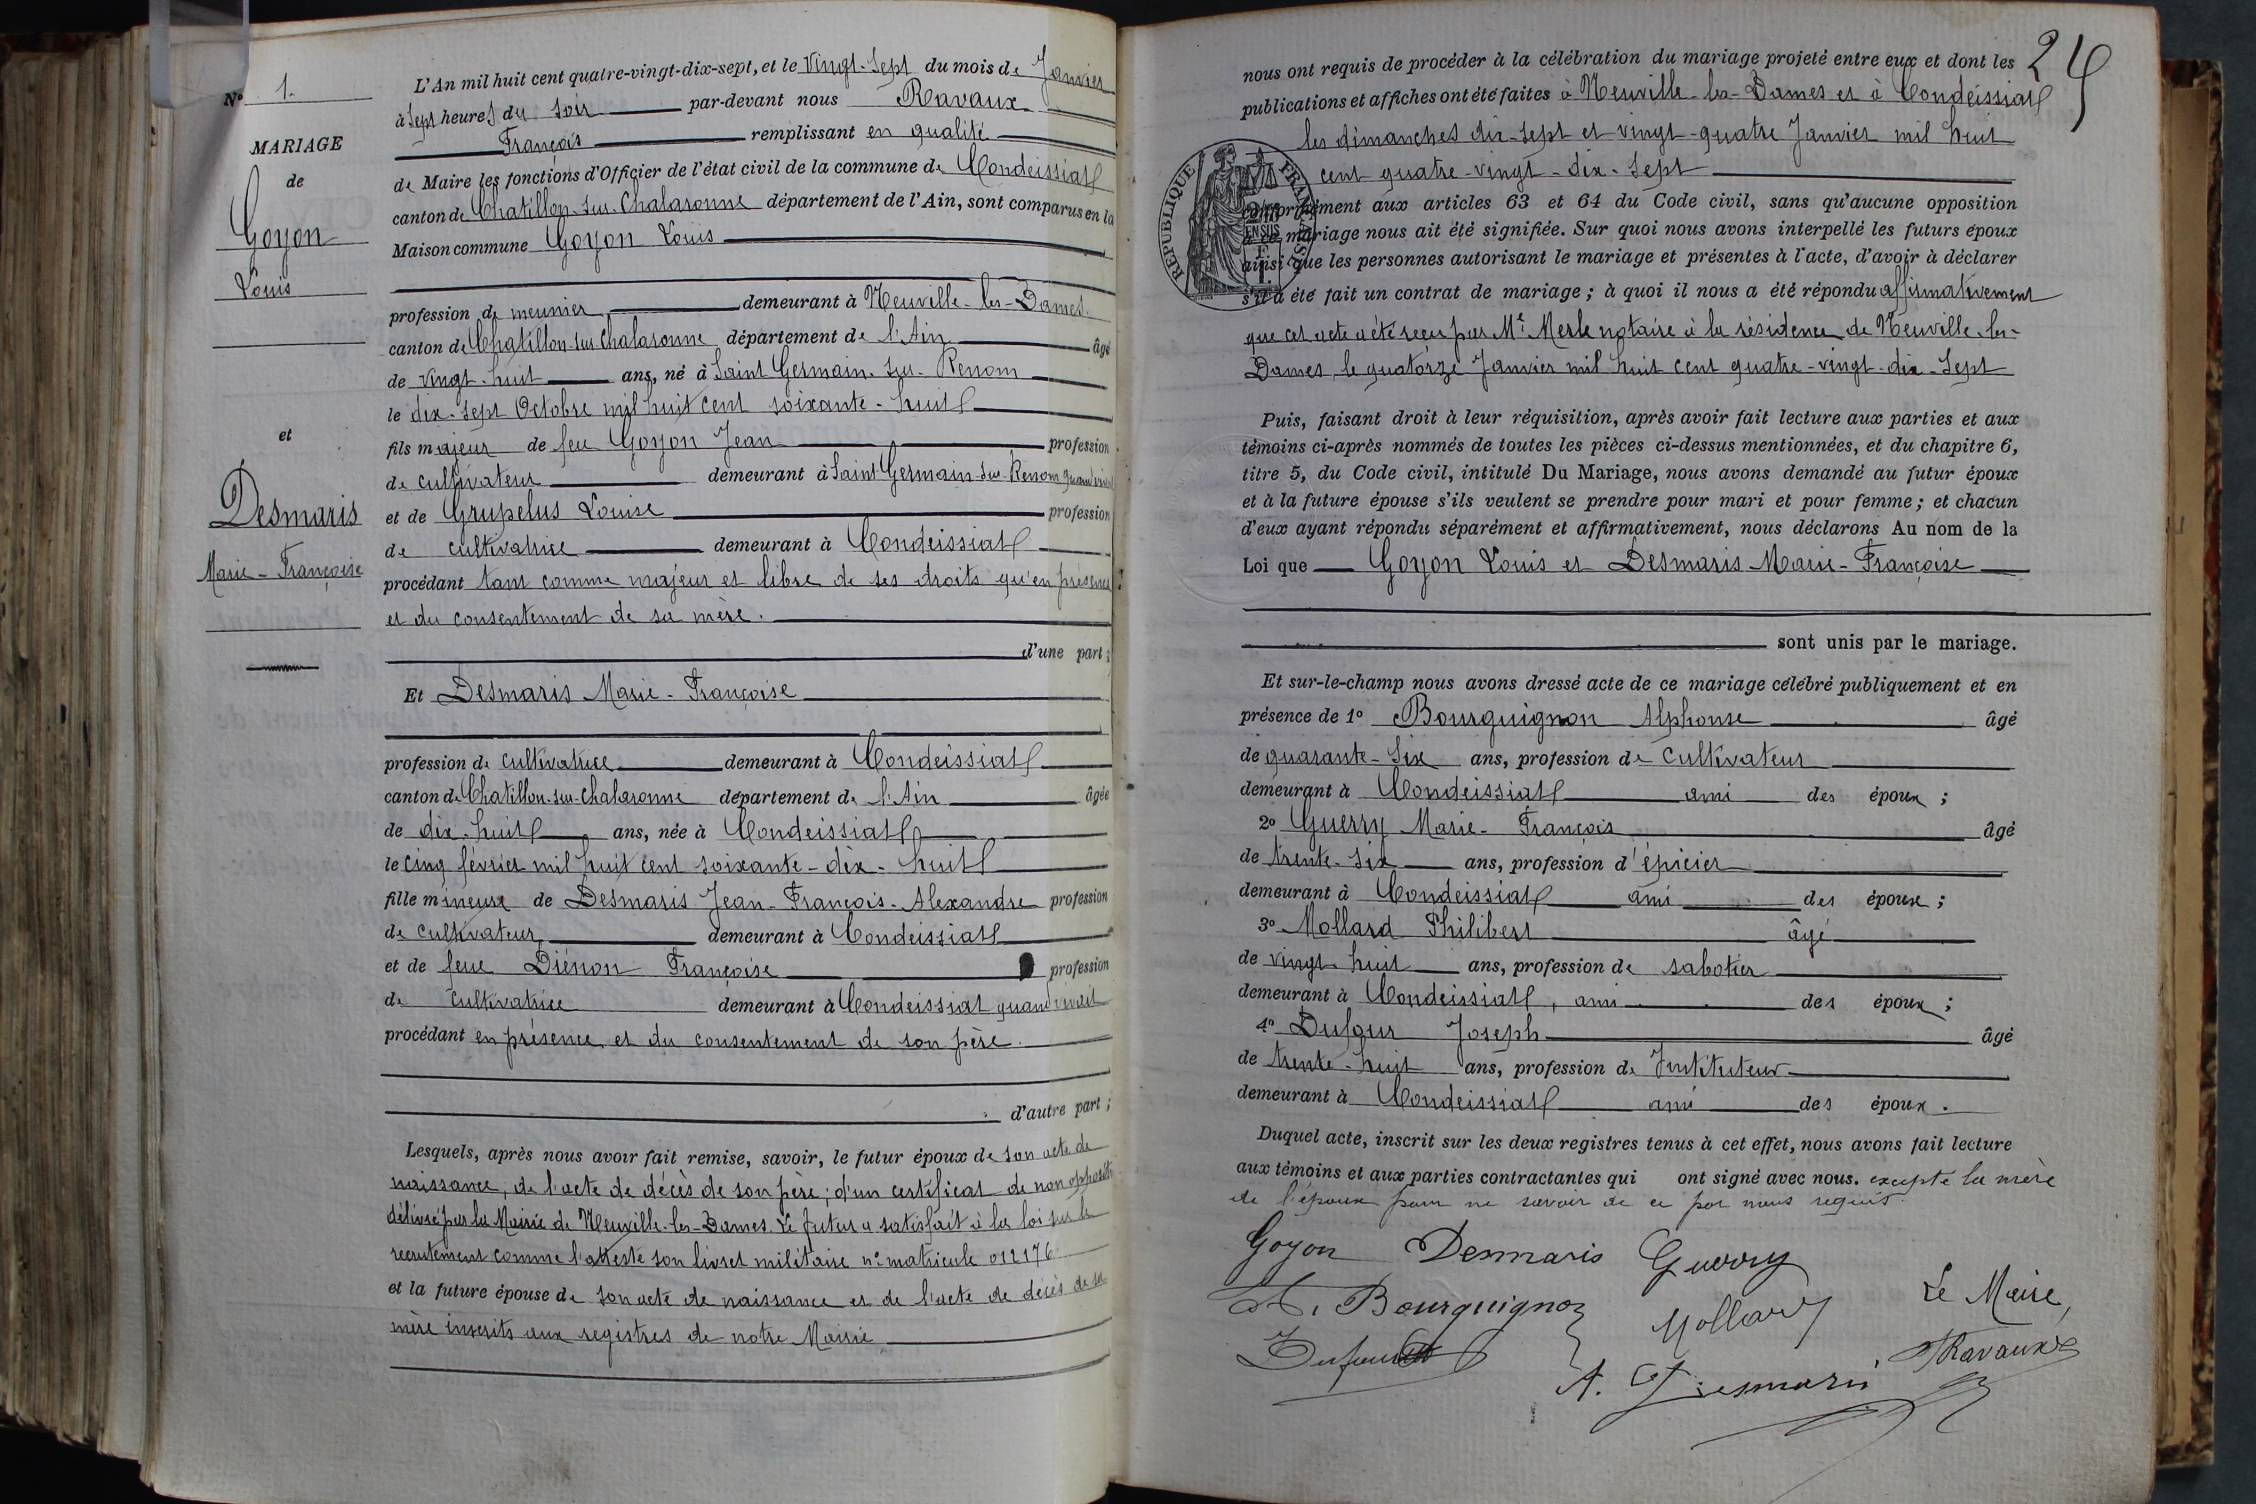 Nº 1.
MARIAGE
de
Goyon
Louis
et
Desmaris
Marie-Françoise
L'An mil huit cent quatre-vingt-dix-sept, et le Vingt-Sept du mois de Janvier
à Sept heures du Soir par-devant nous Ravaux
François remplissant en qualité
de Maire les fonctions d'Officier de l'état civil de la commune de Condeissiat
canton de Chatillon-sur-Chalaronne département de l'Ain, sont comparus en la
Maison commune Goyon Louis
profession de meunier demeurant à Neuville-les-Dames.
canton de Chatillon-sur-Chalaronne département de l'Ain âgé
de vingt-huit ans, né à Saint Germain-sur-Renom
le dix-sept Octobre mil huit cent soixante-huit
fils majeur de feu Goyon Jean profession
de cultivateur demeurant à Saint Germain-sur-Renom quand vivait
et de Grupelus Louise profession
de cultivatrice demeurant à Condeissiat
procédant tant comme majeur et libre de ses droits qu'en présence
et du consentement de sa mère.
d'une part;
Et Desmaris Marie-Françoise
profession de cultivatrice demeurant à Condeissiat
canton de Chatillon-sur-Chalaronne département de l'Ain âgée
de dix-huit ans, née à Condeissiat
le cinq février mil huit cent soixante-dix-huit
fille mineure de Desmaris Jean-François-Alexandre profession
de cultivateur demeurant à Condeissiat
et de feue Diénon Françoise profession
de cultivatrice demeurant à Condeissiat quand vivait
procédant en présence et du consentement de son père.
d'autre part;
Lesquels, après nous avoir fait remise, savoir, le futur époux de son acte de
naissance, de l'acte de décès de son père; d'un certificat de non opposition
délivré par la Mairie de Neuville-les-Dames. Le futur a satisfait à la loi sur le
recrutement comme l'atteste son livret militaire nº matricule 012176
et la future épouse de son acte de naissance et de l'acte de décès de sa
mère inscrits aux registres de notre Mairie
24
nous ont requis de procéder à la célébration du mariage projeté entre eux et dont les
publications et affiches ont été faites à Neuville-les-Dames et à Condeissiat
les dimanches dix-sept et vingt-quatre Janvier mil huit
cent quatre-vingt-dix-sept
RÉPUBLIQUE FRANÇAISE
conformément aux articles 63 et 64 du Code civil, sans qu'aucune opposition
à ce mariage nous ait été signifiée. Sur quoi nous avons interpellé les futurs époux
ainsi que les personnes autorisant le mariage et présentes à l'acte, d'avoir à déclarer
s'il a été fait un contrat de mariage; à quoi il nous a été répondu affirmativement
que cet acte a été reçu par Me Merle notaire à la résidence de Neuville-les-
Dames, le quatorze Janvier mil huit cent quatre-vingt-dix-sept
Puis, faisant droit à leur réquisition, après avoir fait lecture aux parties et aux
témoins ci-après nommés de toutes les pièces ci-dessus mentionnées, et du chapitre 6,
titre 5, du Code civil, intitulé Du Mariage, nous avons demandé au futur époux
et à la future épouse s'ils veulent se prendre pour mari et pour femme; et chacun
d'eux ayant répondu séparément et affirmativement, nous déclarons Au nom de la
Loi que Goyon Louis et Desmaris Marie-Françoise
sont unis par le mariage.
Et sur-le-champ nous avons dressé acte de ce mariage célébré publiquement et en
présence de 1º Bourguignon Alphonse âgé
de quarante-six ans, profession de cultivateur
demeurant à Condeissiat ami des époux;
2º Guerry Marie-François âgé
de trente-six ans, profession d'épicier
demeurant à Condeissiat ami des époux;
3º Mollard Philibert âgé
de vingt-huit ans, profession de sabotier
demeurant à Condeissiat, ami des époux;
4º Dufour Joseph âgé
de trente-huit ans, profession de Instituteur
demeurant à Condeissiat ami des époux.
Duquel acte, inscrit sur les deux registres tenus à cet effet, nous avons fait lecture
aux témoins et aux parties contractantes qui ont signé avec nous. excepté la mère
de l'époux pour ne savoir de ce par nous requis
Goyon Desmaris Guerry
A. Bourguignon Mollard Le Maire,
Dufour A. Desmaris Ravaux